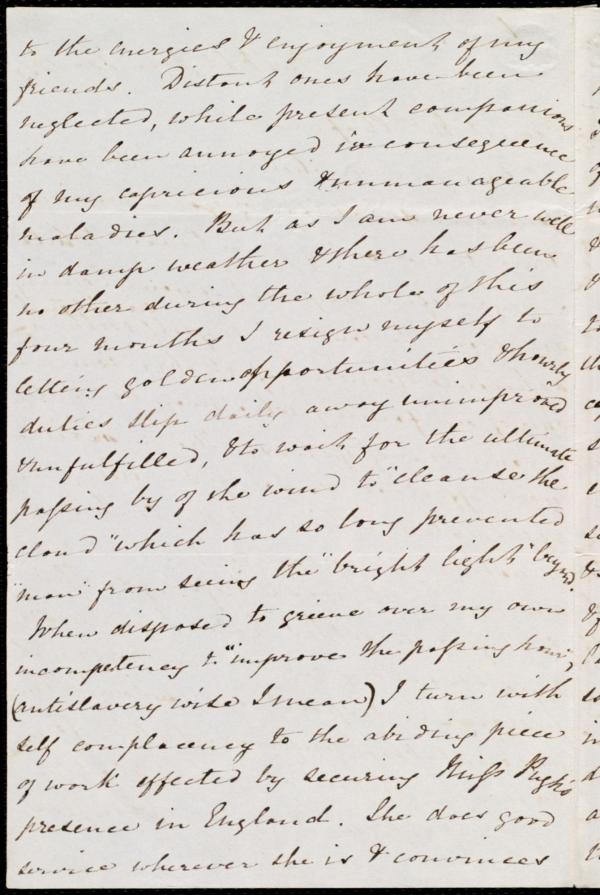 to the energies & enjoyment of my
friends. Distant ones have been
neglected, while present companions
have been annoyed in consequence
of my capricious & unmanageable
maladies. But as I am never well
in damp weather & there has been
no other during the whole of this
four months I resign myself to
letting golden opportunities & hourly
duties slip daily away unimproved
& unfulfilled, & to wait for the ultimate
passing by of the wind to "cleanse the
cloud" which has so long prevented
"man" from seeing the "bright light" beyond.
When disposed to grieve over my own
incompetency to "improve the passing hour,"
(antislavery wise I mean) I turn with
self complacency to the abiding piece
of work effected by securing Miss Pugh's
presence in England. She does good
service wherever she is & convinces